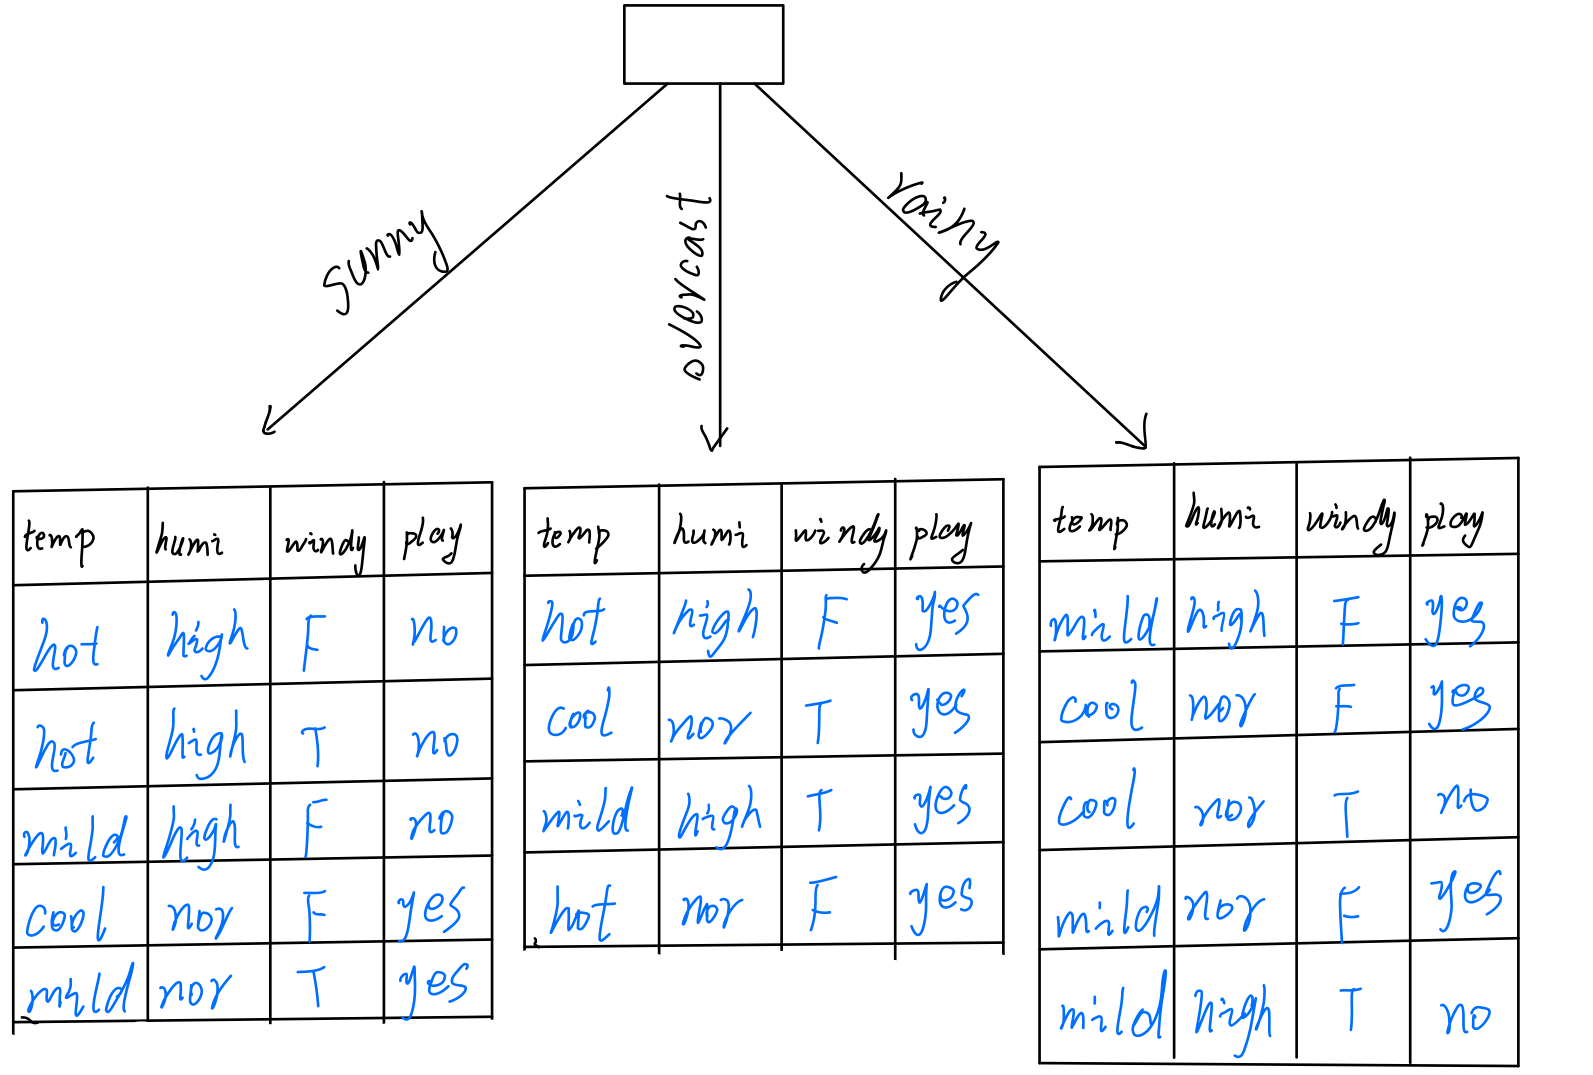 sunny
overcast
rainy
temp humi windy play
hot high F no
hot high T no
mild high F no
cool nor F yes
mild nor T yes
temp humi windy play
hot high F yes
cool nor T yes
mild high T yes
hot nor F yes
temp humi windy play
mild high F yes
cool nor F yes
cool nor T no
mild nor F yes
mild high T no